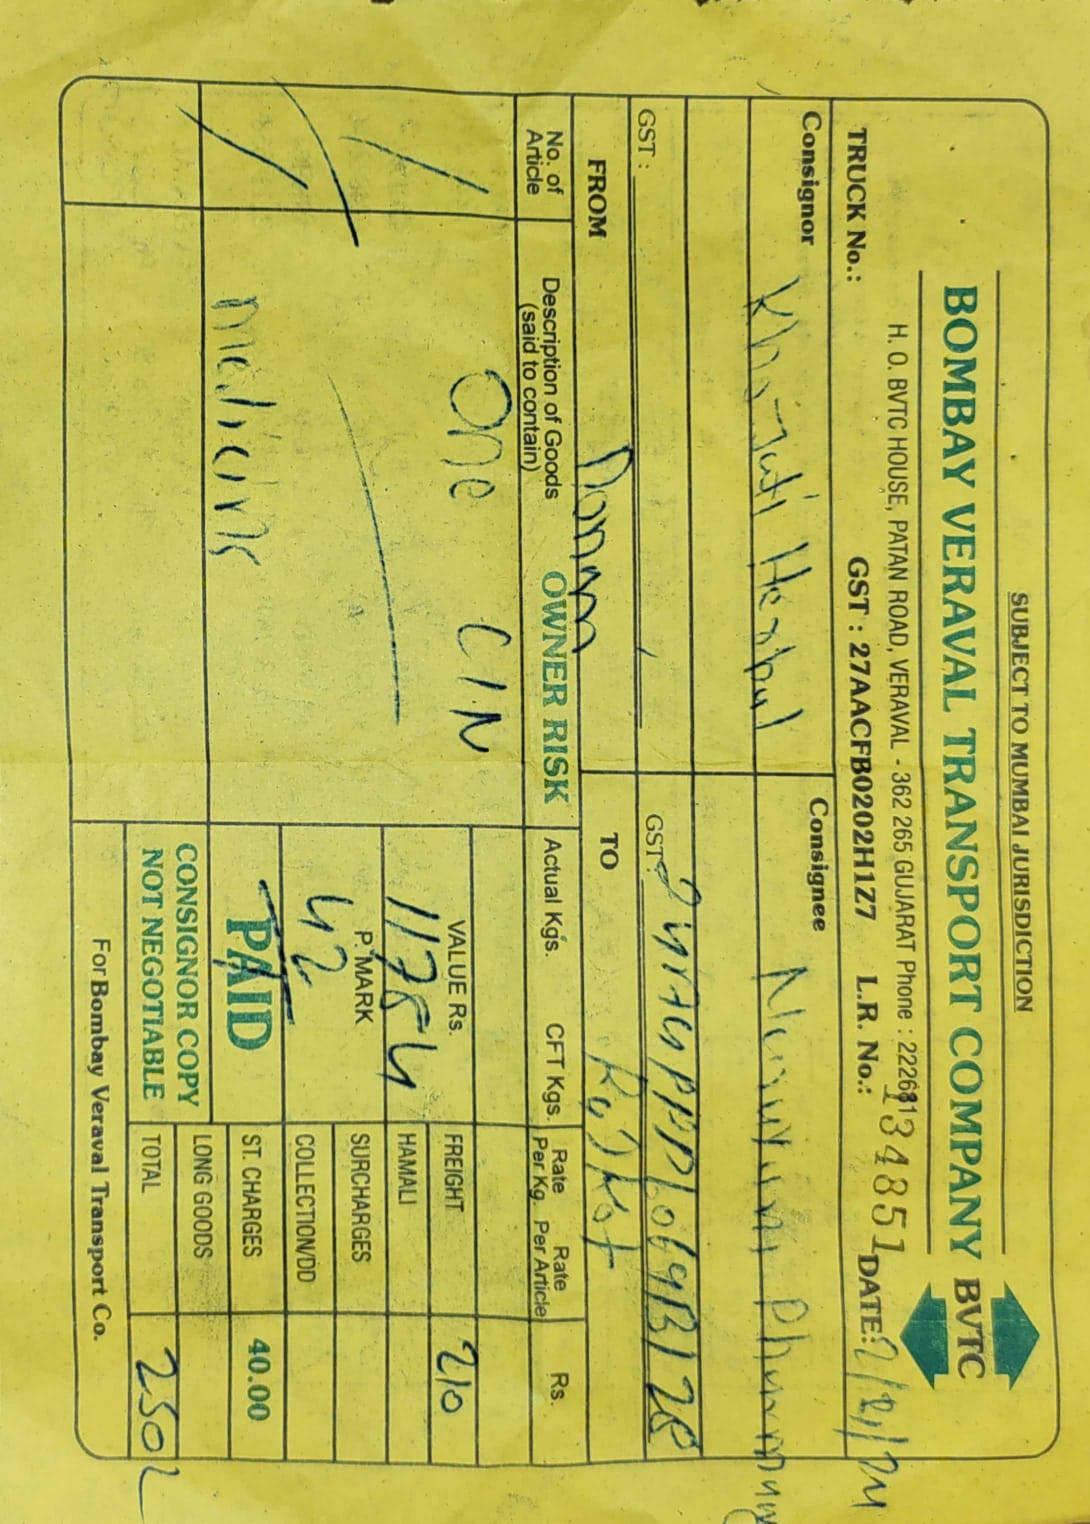 SUBJECT TO MUMBAI JURISDICTION
BOMBAY VERAVAL TRANSPORT COMPANY BVTC
H. O. BVTC HOUSE, PATAN ROAD, VERAVAL - 362 265 GUJARAT Phone : 2226813
GST : 27AACFB0202H1Z7 L.R. No.: 134851
TRUCK No.: DATE:
Consignor Herbal
Consignee
GST :
GST
FROM
TO
No. of Article
Description of Goods (said to contain)
OWNER RISK
Actual Kg's.
CFT Kgs.
Rate Per Kg.
Rate Per Article
Rs.
One CIN
VALUE Rs.
11784
P. MARK
42
PAID
CONSIGNOR COPY
NOT NEGOTIABLE
FREIGHT 210
HAMALI
SURCHARGES
COLLECTION/DD
ST. CHARGES 40.00
LONG GOODS
TOTAL 250
For Bombay Veraval Transport Co.